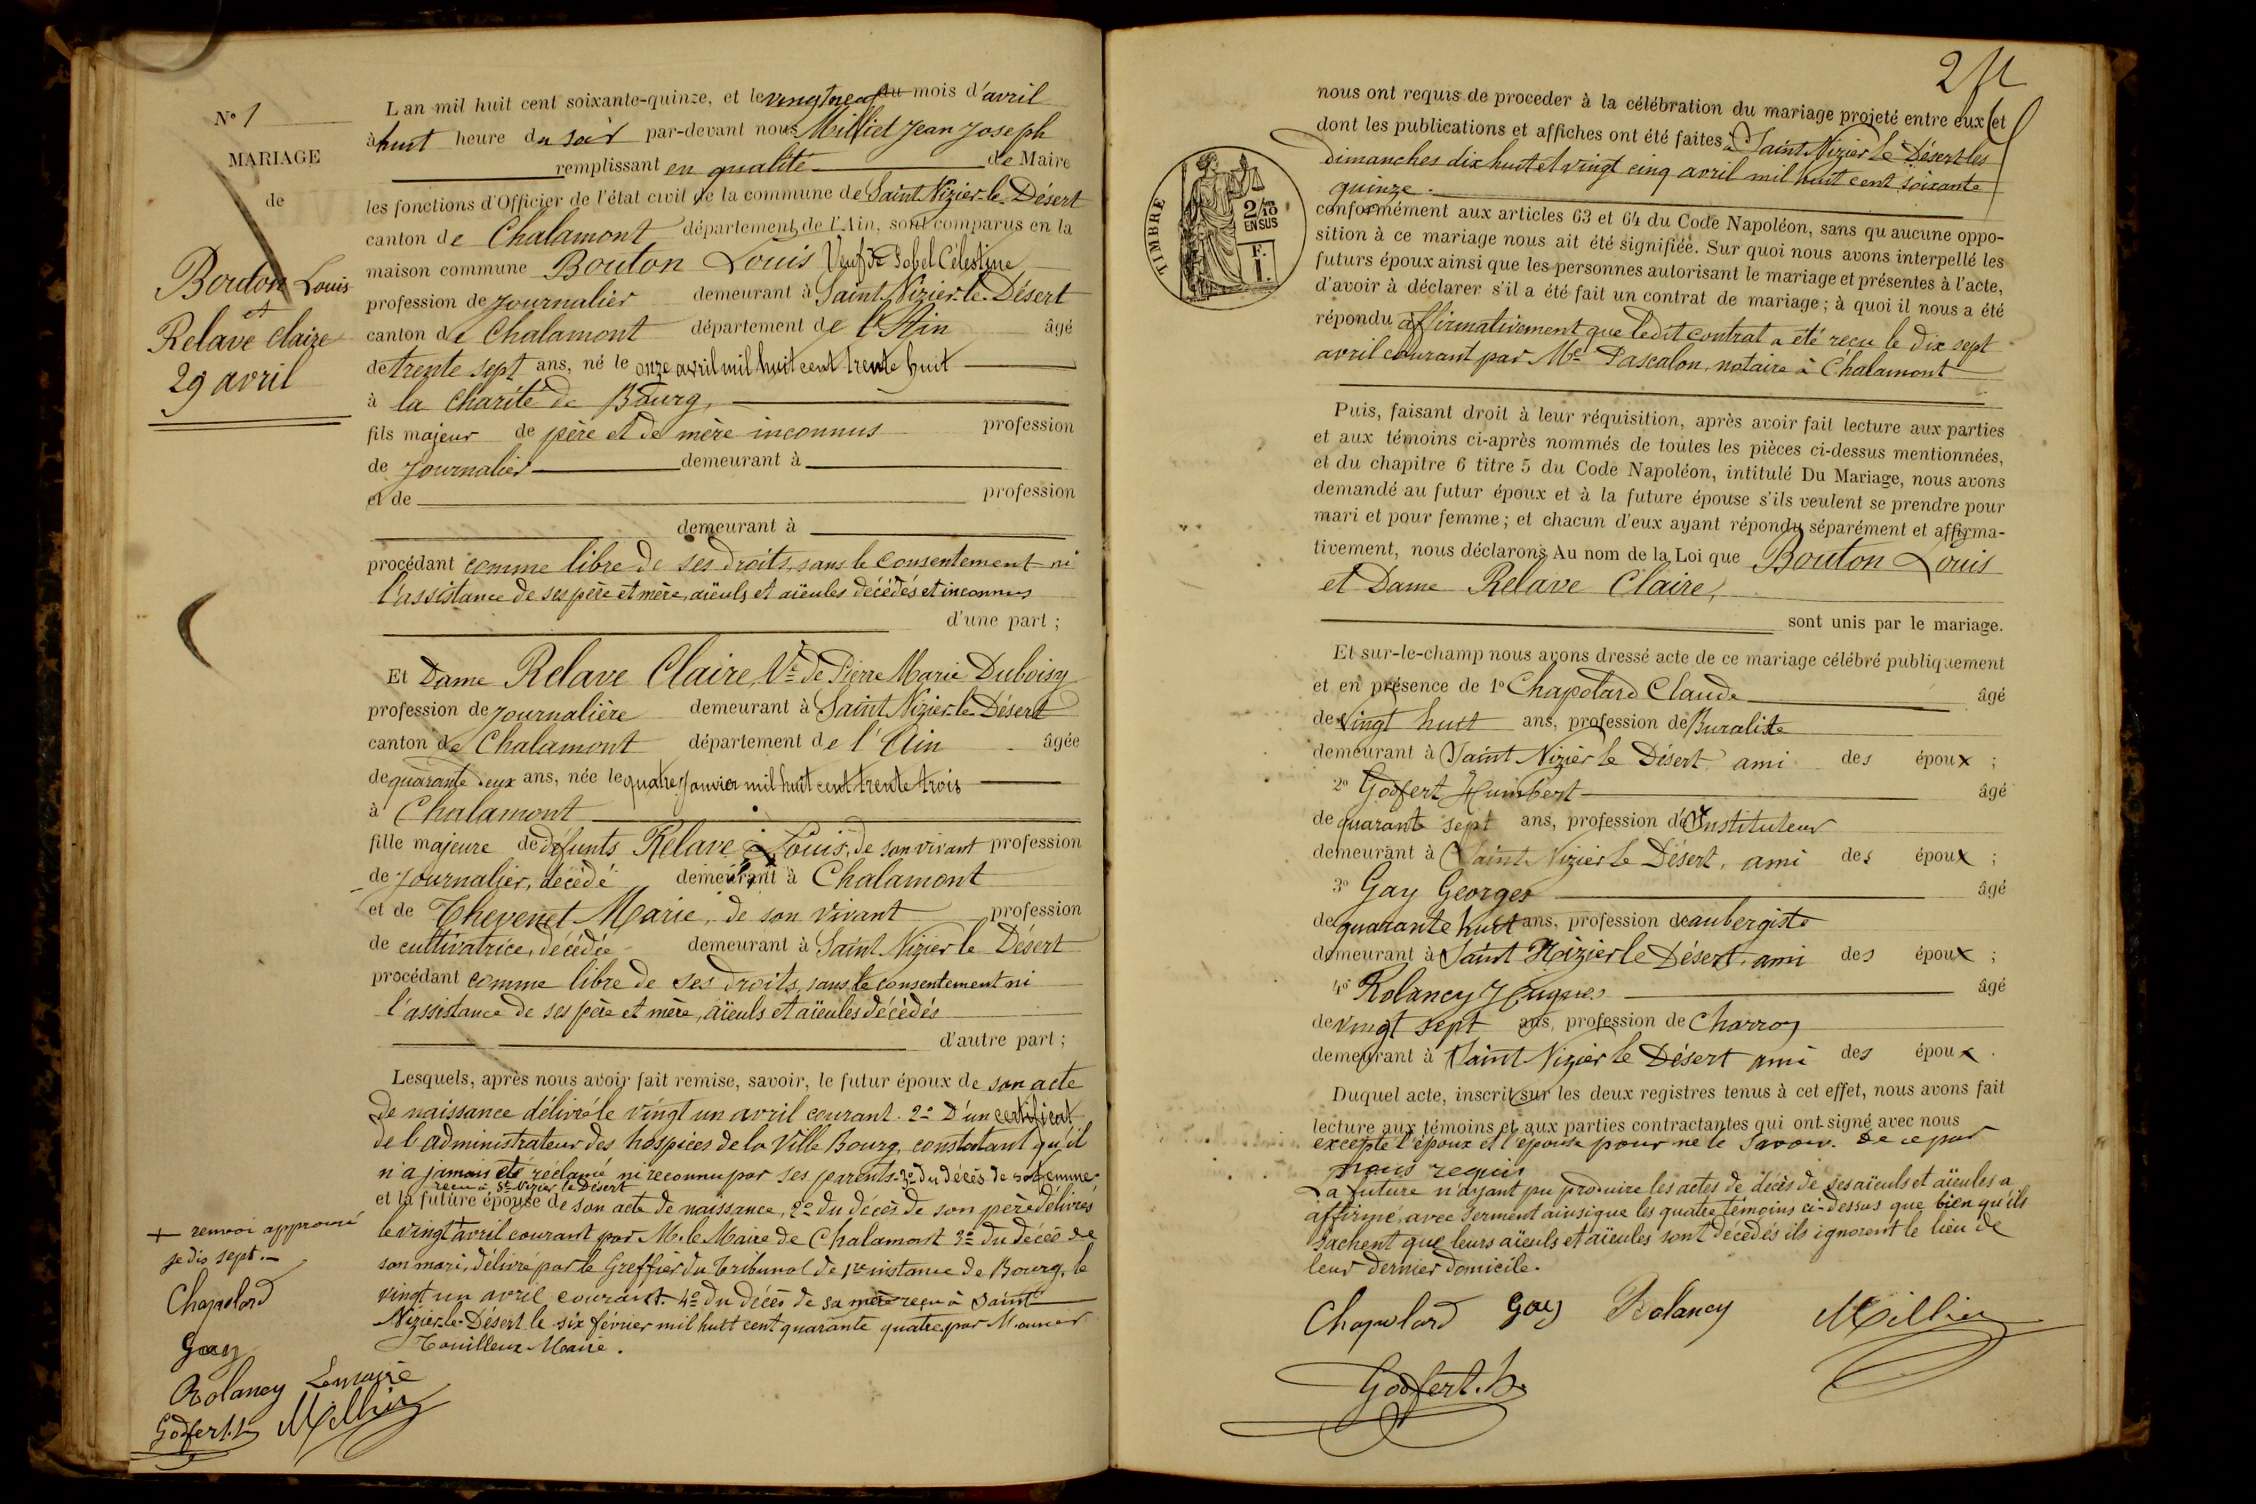 N° 1
MARIAGE
de
Bouton Louis
et
Relave Claire
29 avril
L'an mil huit cent soixante-quinze, et le vingt neuf du mois d'avril
à huit heure du soir par-devant nous Milliet Jean Joseph
remplissant en qualité de Maire
les fonctions d'Officier de l'état civil de la commune de Saint Nizier-le-Désert
canton de Chalamont département de l'Ain, sont comparus en la
maison commune Bouton Louis Veuf de Célestine
profession de journalier demeurant à Saint Nizier-le-Désert
canton de Chalamont département de l'Ain âgé
de trente sept ans, né le onze avril mil huit cent trente huit
à la Charité de Bourg,
fils majeur de père et de mère inconnus profession
de journalier demeurant à
et de profession
demeurant à
procédant comme libre de ses droits, sans le consentement ni
l'assistance de ses père et mère, aïeuls et aïeules décédés et inconnus
d'une part ;
Et Dame Relave Claire, Ve de Pierre Marie Duboisy
profession de journalière demeurant à Saint Nizier-le-Désert
canton de Chalamont département de l'Ain âgée
de quarante deux ans, née le quatre janvier mil huit cent trente trois
à Chalamont
fille majeure de défunts Relave Louis, de son vivant profession
de journalier, décédé demeurant à Chalamont
et de Thevenet Marie, de son vivant profession
de cultivatrice, décédée demeurant à Saint Nizier le Désert
procédant comme libre de ses droits, sans le consentement ni
l'assistance de ses père et mère, aïeuls et aïeules décédés
d'autre part ;
Lesquels, après nous avoir fait remise, savoir, le futur époux de son acte
de naissance délivré le vingt un avril courant. 2° D'un certificat
de l'administrateur des hospices de la Ville Bourg, constatant qu'il
n'a jamais été réclamé ni reconnu par ses parents. 3° du décès de sa femme
reçu à St Nizier le Désert
et la future épouse de son acte de naissance, 2° du décès de son père délivrés
le vingt avril courant par M. le Maire de Chalamont 3° du décès de
son mari, délivré par le Greffier du Tribunal de 1re instance de Bourg, le
vingt un avril courant. 4° du décès de sa mère reçu à Saint
Nizier-le-Désert le six février mil huit cent quarante quatre par
Maire.
+ renvoi approuvé
je dis sept.
Chapolard
Gay
Rolancy Le maire
Godfert. h Milliet
2
nous ont requis de proceder à la célébration du mariage projeté entre eux et
dont les publications et affiches ont été faites à Saint Nizier le Désert les
dimanches dix huit et vingt cinq avril mil huit cent soixante
quinze.
TIMBRE
2/10
EN SUS
F.
1.
conformément aux articles 63 et 64 du Code Napoléon, sans qu'aucune oppo-
sition à ce mariage nous ait été signifiée. Sur quoi nous avons interpellé les
futurs époux ainsi que les personnes autorisant le mariage et présentes à l'acte,
d'avoir à déclarer s'il a été fait un contrat de mariage ; à quoi il nous a été
répondu affirmativement que ledit contrat a été reçu le dix sept
avril courant par Me Pascalon, notaire à Chalamont
Puis, faisant droit à leur réquisition, après avoir fait lecture aux parties
et aux témoins ci-après nommés de toutes les pièces ci-dessus mentionnées,
et du chapitre 6 titre 5 du Code Napoléon, intitulé Du Mariage, nous avons
demandé au futur époux et à la future épouse s'ils veulent se prendre pour
mari et pour femme ; et chacun d'eux ayant répondu séparément et affirma-
tivement, nous déclarons Au nom de la Loi que Bouton Louis
et Dame Relave Claire,
sont unis par le mariage.
Et sur-le-champ nous avons dressé acte de ce mariage célébré publiquement
et en présence de 1° Chapolard Claude âgé
de vingt huit ans, profession de Buraliste
demeurant à Saint Nizier le Désert ami des époux ;
2° Godfert Humbert âgé
de quarante sept ans, profession d'Instituteur
demeurant à Saint Nizier le Désert, ami des époux ;
3° Gay Georges âgé
de quarante huit ans, profession de aubergiste
demeurant à Saint Nizier le Désert, ami des époux ;
4° Rolancy Hugues âgé
de vingt sept ans, profession de Charron
demeurant à Saint Nizier le Désert ami des époux.
Duquel acte, inscrit sur les deux registres tenus à cet effet, nous avons fait
lecture aux témoins et aux parties contractantes qui ont signé avec nous
excepté l'époux et l'épouse pour ne le savoir. De ce par
nous requis
La future n'ayant pu produire les actes de décès de ses aïeuls et aïeules a
affirmé, avec serment ainsi que les quatre témoins ci-dessus que bien qu'ils
sachent que leurs aïeuls et aïeules sont décédés ils ignorent le lieu de
leur dernier domicile.
Chapolard Gay Rolancy Milliet
Godfert. h.